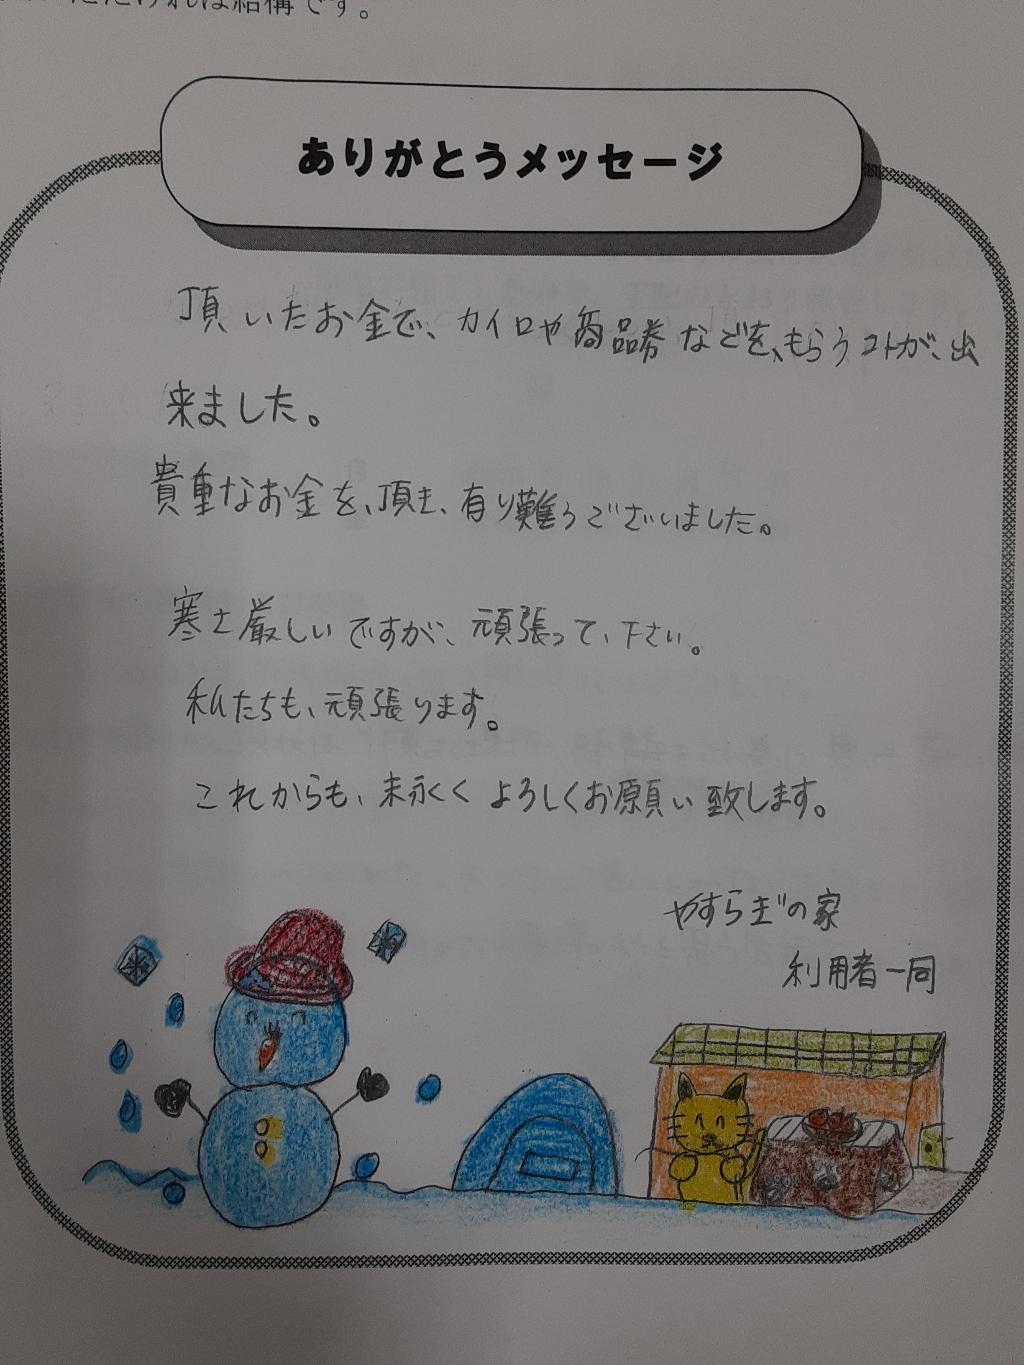 いただければ結構です。
ありがとうメッセージ
頂いたお金で、カイロや商品券などを、もらうコトが、出
来ました。
貴重なお金を、頂き、有り難うございました。
寒さ厳しいですが、頑張って、下さい。
私たちも、頑張ります。
これからも、末永くよろしくお願い致します。
やすらぎの家
利用者一同